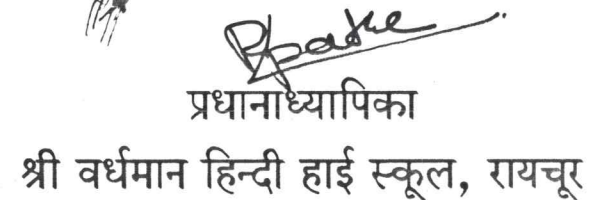 प्रधानाध्यापिका
श्री वर्धमान हिन्दी हाई स्कूल, रायचूर